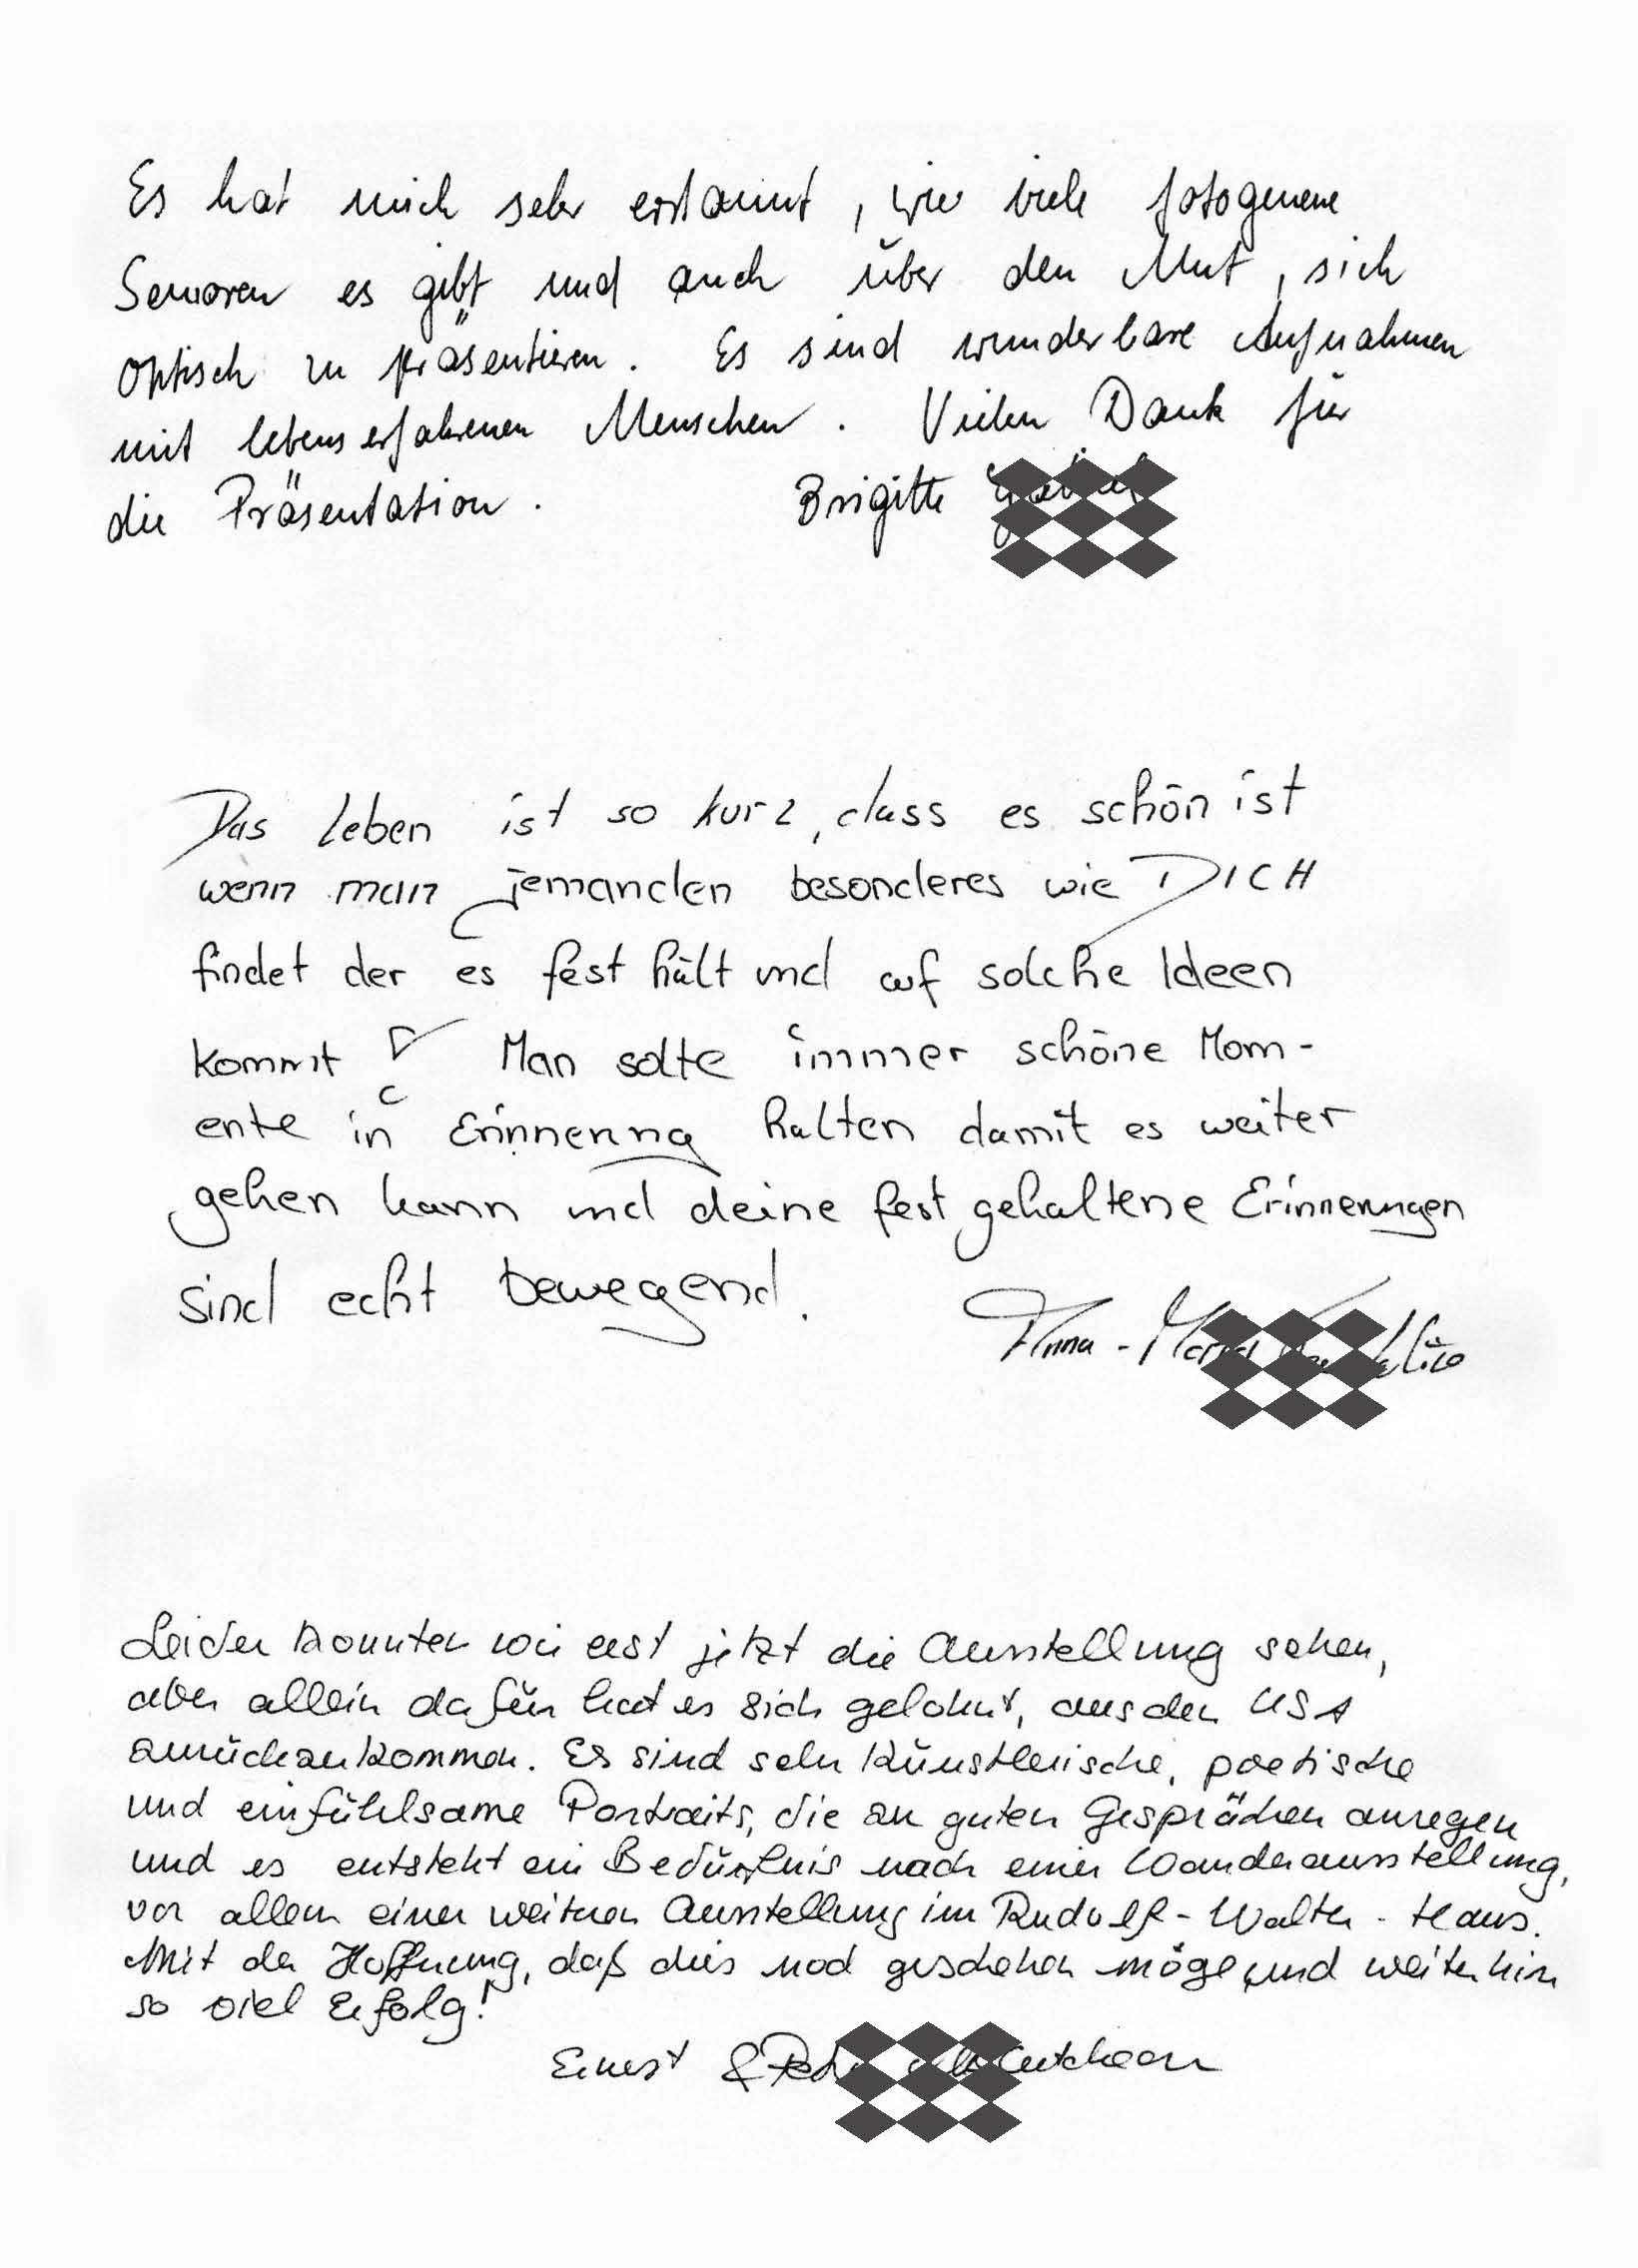 Es hat mich sehr erstaunt, wie viele fotogene
Senioren es gibt und auch über den Mut, sich
optisch zu präsentieren. Es sind wunderbare Aufnahmen
mit lebenserfahrenen Menschen. Vielen Dank für
die Präsentation. Brigitte
Das Leben ist so kurz, dass es schön ist
wenn man jemanden besonderes wie DICH
findet der es fest hält und auf solche Ideen
kommt! Man solte immer schöne Mom-
ente in Erinnerung halten damit es weiter
gehen kann und deine fest gehaltene Erinnerungen
sind echt bewegend.
Anna-
Leider konnten wir erst jetzt die Ausstellung sehen,
aber allein dafür hat es sich gelohnt, aus den USA
zurückzukommen. Es sind sehr künstlerische, poetische
und einfühlsame Portraits, die zu guten Gesprächen anregen
und es entsteht ein Bedürfnis nach einer Wanderausstellung,
vor allem einer weiteren Ausstellung im Rudolf-Walter-Haus.
Mit der Hoffnung, daß dies noch geschehen möge und weiterhin
so viel Erfolg!
Ernest &